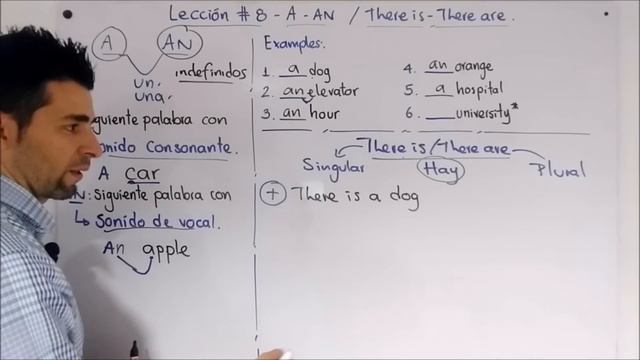 Lección # 8 - A - AN / There is - There are.
A AN
un.
una.
indefinidos
siguiente palabra con
sonido consonante.
A car
N: Siguiente palabra con
Sonido de vocal.
An apple
Examples.
1. a dog
2. an elevator
3. an hour
4. an orange
5. a hospital
6. ___ university*
There is/There are
Singular Hay Plural
+ There is a dog